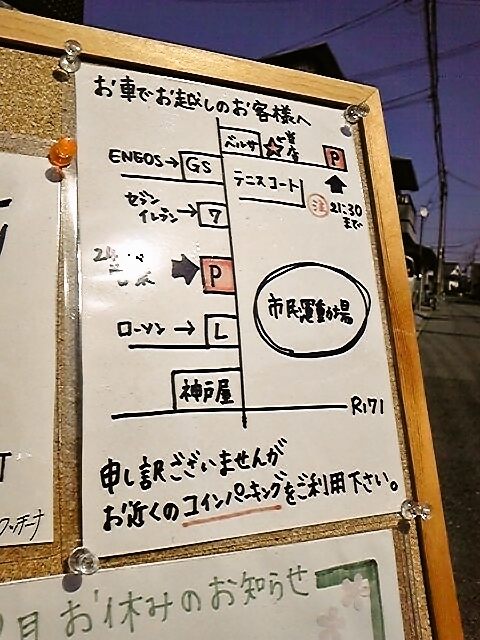 お車でお越しのお客様へ
ベルサ
当店
P
ENEOS→GS
テニスコート
注 21:30
まで
セブン
イレブン→7
24
P
市民運動場
ローソン→L
神戸屋
R171
申し訳ございませんが
お近くのコインパーキングをご利用下さい。
月 お休みのお知らせ